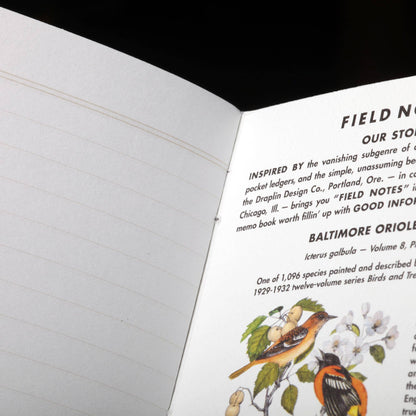 FIELD NO
OUR STO
INSPIRED BY the vanishing subgenre of
pocket ledgers, and the simple, unassuming be
the Draplin Design Co., Portland, Ore. — in co
Chicago, Ill. — brings you "FIELD NOTES" i
memo book worth fillin' up with GOOD INFOR
BALTIMORE ORIOLE
Icterus galbula — Volume 8, P
One of 1,096 species painted and described b
1929-1932 twelve-volume series Birds and Tre
a
fo
wa
an
are
Eng
truc